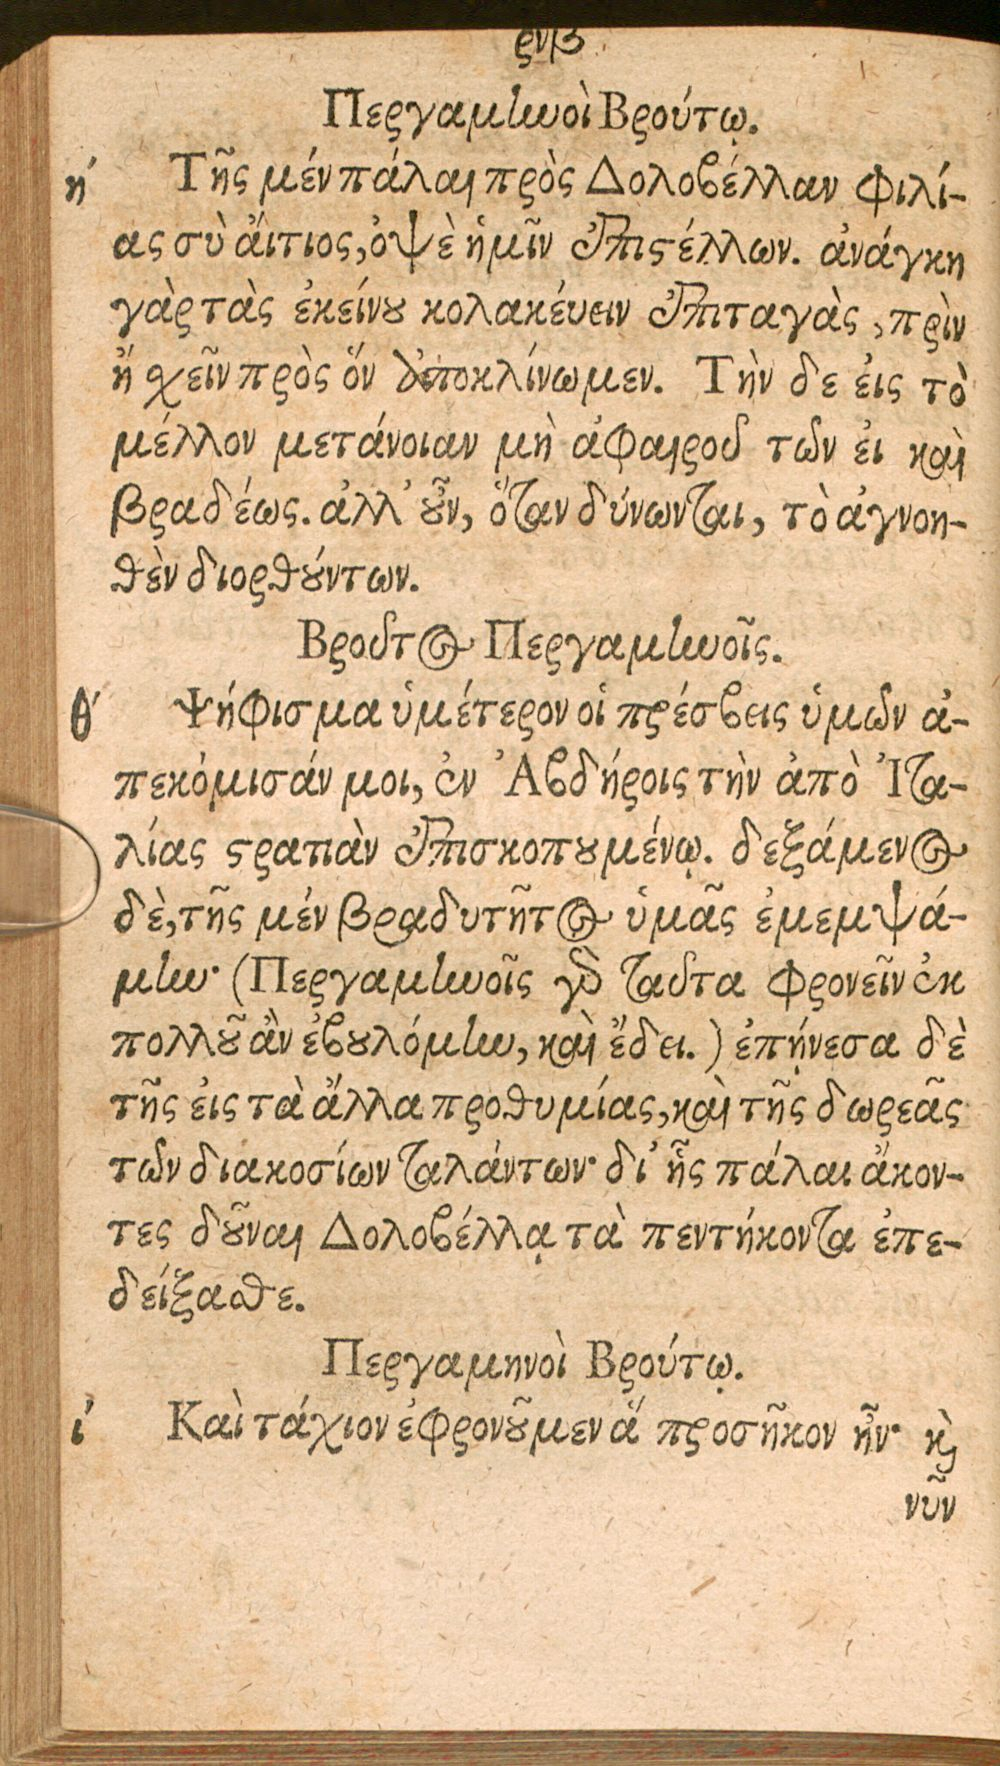 ρνβ
Περγαμηνοὶ Βρούτῳ.
η΄ Τῆς μέν πάλαι πρὸς Δολοβέλλαν φιλί-
ας σὺ ἄιτιος, ὀψὲ ἡμῖν ἐπιστέλλων. ἀνάγκη
γὰρ τὰς ἐκείνου κολακέυειν ἐπιταγὰς, πρὶν
ἤ χεῖν πρὸς ὅν ἀποκλίνωμεν. Τὴν δε ἐις τὸ
μέλλον μετάνοιαν μὴ ἀφαιροῦ τῶν ἐι καὶ
βραδέως. ἀλλ' οὖν, ὅταν δύνωνται, τὸ ἀγνοη-
θὲν διορθούντων.
Βροῦτος Περγαμηνοῖς.
θ΄ Ψήφισμα ὑμέτερον οἱ πρέσβεις ὑμῶν ἀ-
πεκόμισάν μοι, ἐν Ἀβδήροις τὴν ἀπὸ Ἰτα-
λίας στρατιὰν ἐπισκοπουμένῳ. δεξάμενος
δὲ, τῆς μέν βραδυτῆτος ὑμᾶς ἐμεμψά-
μην· (Περγαμηνοῖς γὰρ ταῦτα φρονεῖν ἐκ
πολλοῦ ἂν ἐβουλόμην, καὶ ἔδει.) ἐπῄνεσα δὲ
τῆς ἐις τὰ ἄλλα προθυμίας, καὶ τῆς δωρεᾶς
τῶν διακοσίων ταλάντων· δι' ἧς πάλαι ἄκον-
τες δοῦναι Δολοβέλλᾳ τὰ πεντήκοντα ἐπε-
δείξασθε.
Περγαμηνοὶ Βρούτῳ.
ι΄ Καὶ τάχιον ἐφρονοῦμεν ἅ προσῆκον ἦν· καὶ
νῦν